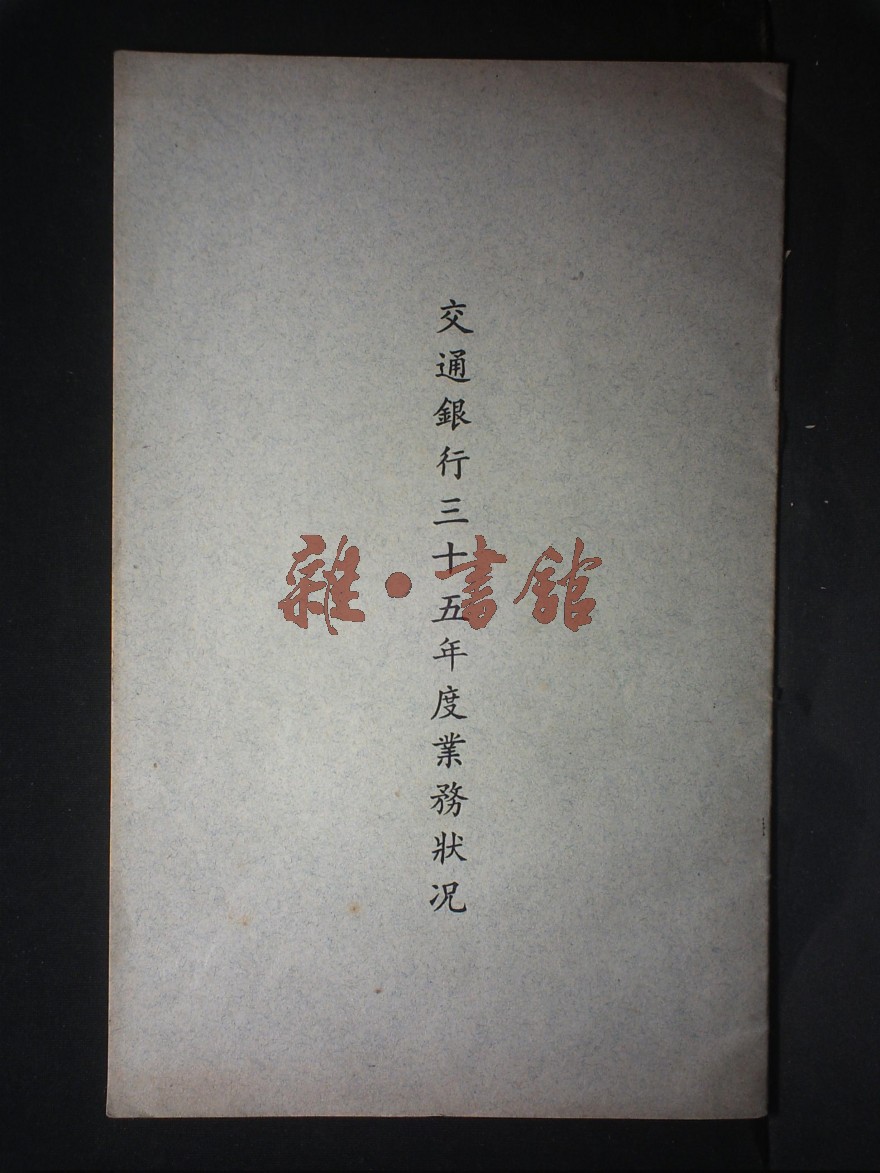 交通銀行三十五年度業務狀况
雜·書館